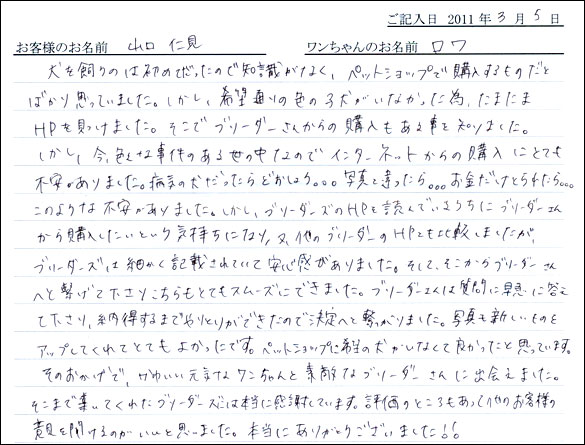 ご記入日 2011年 3月 5日
お客様のお名前 山口 仁見 ワンちゃんのお名前 ロワ
犬を飼うのは初めだったので知識がなく、ペットショップで購入するものだと
ばかり思っていました。しかし、希望通りの色の子犬がいなかった為、たまたま
HPを見つけました。そこでブリーダーさんからの購入もある事を知りました。
しかし、今、色々な事件のある世の中なのでインターネットからの購入にとても
不安がありました。病気の犬だったらどうしよう。。。写真と違ったら。。。お金だけとられたら。。。
このような不安がありました。しかし、ブリーダーズのHPを読んでいるうちにブリーダーさん
から購入したいという気持ちになり、又、他のブリーダーのHPとも比較しましたが、
ブリーダーズは細かく記載されていて安心感がありました。そして、そこからブリーダーさん
へと繋げて下さりこちらもとてもスムーズにできました。ブリーダーさんは質問に早急に答え
て下さり、納得するまでやりとりができたので決定へと繋がりました。写真も新しいものを
アップしてくれてとてもよかったです。ペットショップに希望の犬がいなくて良かったと思っています。
そのおかげで、かわいい元気なワンちゃんと素敵なブリーダーさんに出会えました。
そこまで導いてくれたブリーダーズには本当に感謝しています。評価のところもあって他のお客様の
意見を聞けるのがいいと思いました。本当にありがとうございました!!